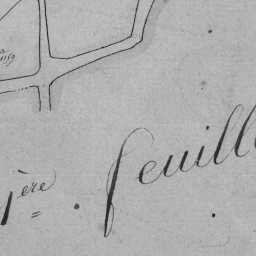 1ère. feuille